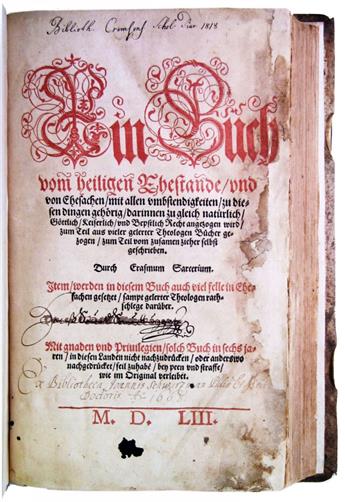 Biblioth. Schol. 1818
Ein Buch
vom̃ heiligen Ehestande/vnd
von Ehesachen/mit allen vmbstendigkeiten/zu die=
sen dingen gehörig/darinnen zu gleich natürlich/
Göttlich/Keiserlich/vnd Bepstlich Recht angezogen wird/
zum Teil aus vieler gelerter Theologen Bücher ge=
zogen/zum Teil vom zusamen zieher selbst
geschrieben.
Durch Erasmum Sarcerium.
Item/werden in diesem Buch auch viel felle in Ehe=
sachen gesetzet/sampt gelerter Theologen rath=
schlege darüber.
Mit gnaden vnd Priuilegien/solch Buch in sechs ja=
ren/in diesen Landen nicht nachzudrücken/oder anderswo
nachgedrücket/feil zuhabē/bey peen vnd straffe/
wie im Original verleibet.
Ex Bibliotheca Joannis
Doctoris
M. D. LIII.